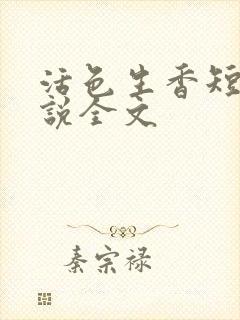 活色生香短
说全文
秦宗禄